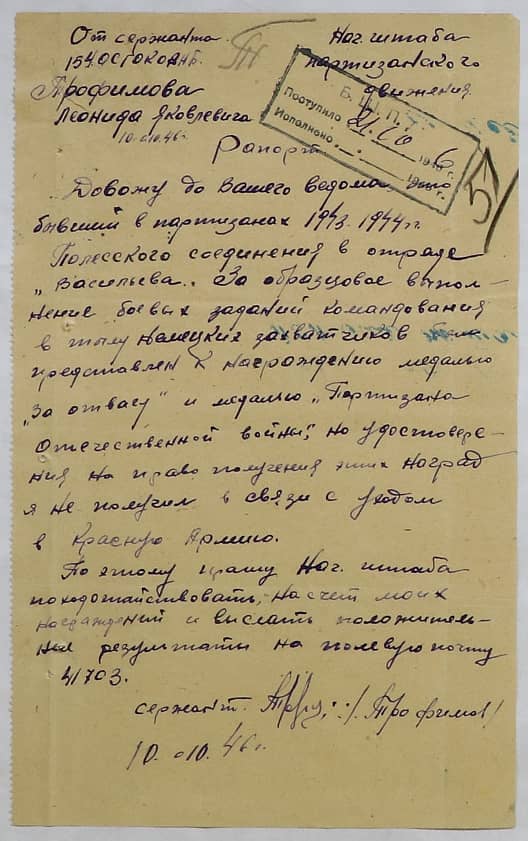 От сержанта
Нач. штаба
154 ОСГОКОРНБ.
партизанского
Трофимова
движения
Леонида Яковлевича
10.010.46 г.
Б. Ш. П. Д.
Поступило 21.10 1946 г.
Исполнено 194 г.
57
Рапорт
Довожу до Вашего ведома, что
бывший в партизанах 1943-1944 гг.
Полесского соединения в отряде
„Васильева". За образцовое выпол-
нение боевых заданий командования
в тылу немецких захватчиков был
представлен к награждению медалью
„За отвагу" и медалью „Партизана
Отечественной войны", но удостовере-
ния на право получения этих наград
я не получил в связи с уходом
в Красную Армию.
Поэтому прошу Нач. штаба
походотайствовать, насчет моих
награждений и выслать положитель-
ные результаты на полевую почту
41703.
сержант. /Трофимов/
10.010.46 г.